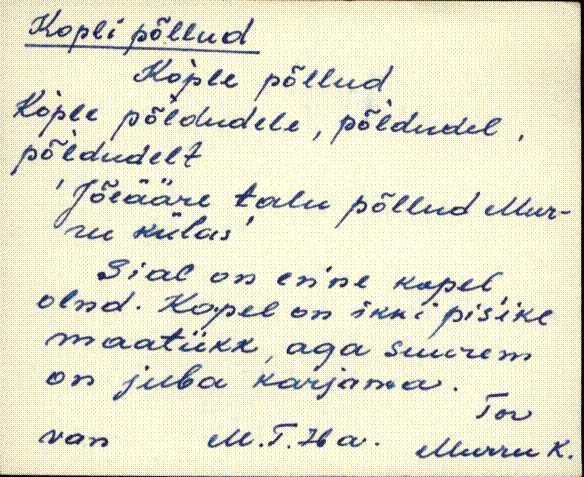 Kopli põllud
Kop̀le põllud
Kop̀le põl̀dudele, põl̀dudel,
põl̀dudelt
'Jõeääre talu põllud Mur-
ru külas'
Sial on en'ne kopel
olnd. Kopel on ikki pis'ike
maatükk, aga suurem
on juba karjama.
Tor
van M. T. Ha. Murru k.